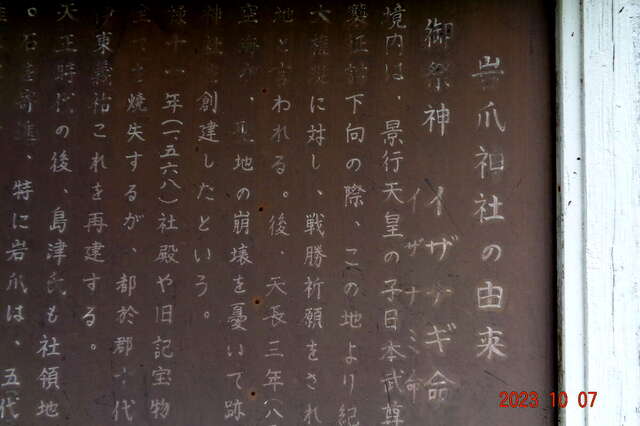 岩爪神社の由来
御祭神 イザナギ命
イザナミ命
境内は、景行天皇の子日本武尊
下向の際、この地より紀
に対し、戦勝祈願をされ
地と言われる。後、天長三年(八
空海が、聖地の崩壊を憂いて跡
神社を創建したという。
禄十一年(一五六八)社殿や旧記宝物
全て焼失するが、都於郡十代
伊東義祐これを再建する。
天正時代の後、島津氏も社領地
石を寄進、特に岩爪は、五代
2023 10 07